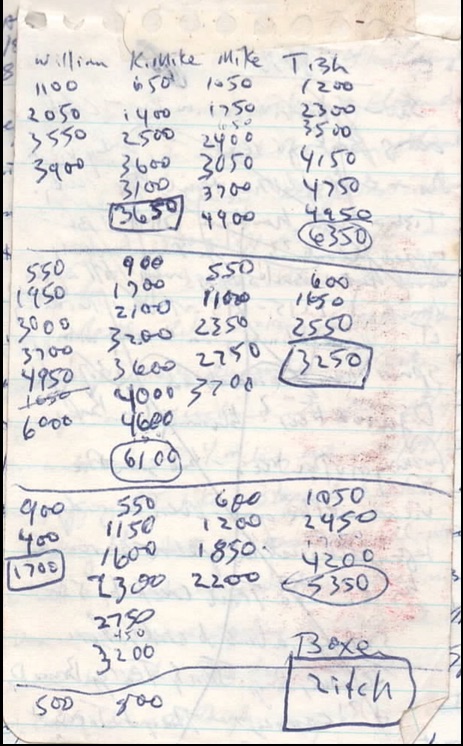 William Mike Tish
1100 650 1050 1200
2050 1400 1750 2300
3550 2500 2400 3500
3900 3600 3050 4150
3100 3700 4750
3650 4900 4950
6350
550 900 550 600
1450 1700 1100 1650
3000 2100 2350 2550
3700 3200 2750 3250
4950 3600 3700
1650 4000
6000 4600
6100
900 550 600 1050
400 1150 1200 2450
1700 1600 1850 4200
2300 2200 5350
2750
450
3200
Boxer
zitch
500 500